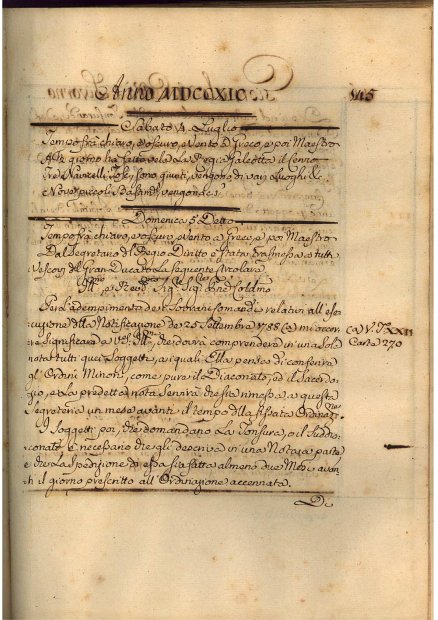 Anno MDCCXIC
145
Sabato 4. Luglio
Tempo fra chiaro, ed oscuro, e vento d Greco, e poi Maestro
giorno ha fatto vela La Regia Galeotta il
Navicelli Tos. sono giunti, vengono di varj Luoghi, &
Nove piccoli Bastim. vengon
Domenica 5. Detto
Tempo fra chiaro, ed oscuro, e vento a Greco, e poi Maestro
Dal Segretario d Regio Diritto è stata trasmessa a tutti
Vescovi del Gran Ducato La seguente Circolare
Ill. e Rev. Sig. Sig. Pne Colmo
Per l'adempimento de Sovrani Comandi relativi all' ese-
cuzione della Notificazione de 25 Settembre 1788 (a) mi occor-
re significare a che dovrà comprendere in una sola
nota tutti quei Soggetti, a i quali Ella pensa di conferire
gl' Ordini Minori, come pure il Diaconato, ed il Sacerdo-
zio, e La predetta nota servirà che sia rimessa a questa
Segreteria un mese avanti il tempo della fissata Ordine
I Soggetti poi, che domandano La Tonsura, o il Suddia-
conato è necessario che gli descriva in una Nota a parte
e che La spedizione di essa sia fatta almeno due Mesi avan-
ti il giorno prescritto all' Ordinazione accennata.
(a) V. T. XXII
Carte 270
Di